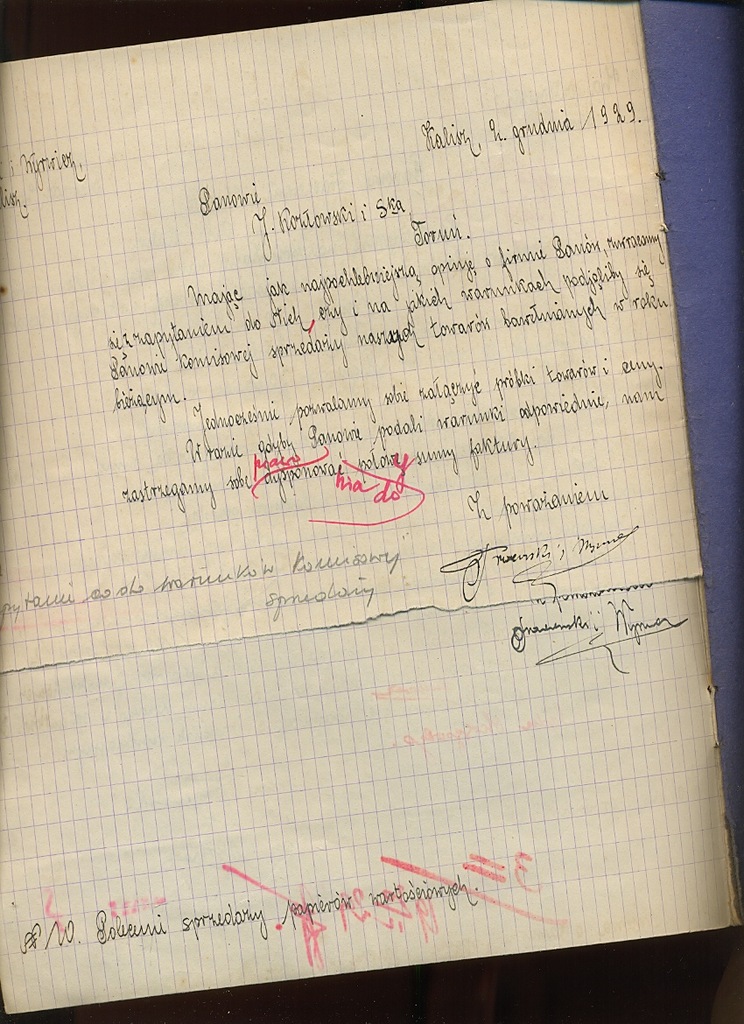 Kalisz, 2. grudnia 1929.
i Wyrwicz,
lisz.
Panowie
J. Kozłowski i Ska
Toruń.
Mając jak najpochlebniejszą opinję o firmie Panów, zwracamy
się z zapytaniem do Nich, czy i na jakich warunkach podjęliby się
Panowie komisowej sprzedaży naszych towarów bawełnianych w roku
bieżącym.
Jednocześnie pozwalamy sobie załączyć próbki towarów i ceny.
W razie gdyby Panowie podali warunki odpowiednie, nam
prawo
zastrzegamy sobie dysponować połowę sumy faktury.
nia do y
Z poważaniem
i Wyrwicz
pytanie co do warunków komisowy
sprzedaży
i Wyrwicz
3
№ 10. Polecenie sprzedaży papierów wartościowych.